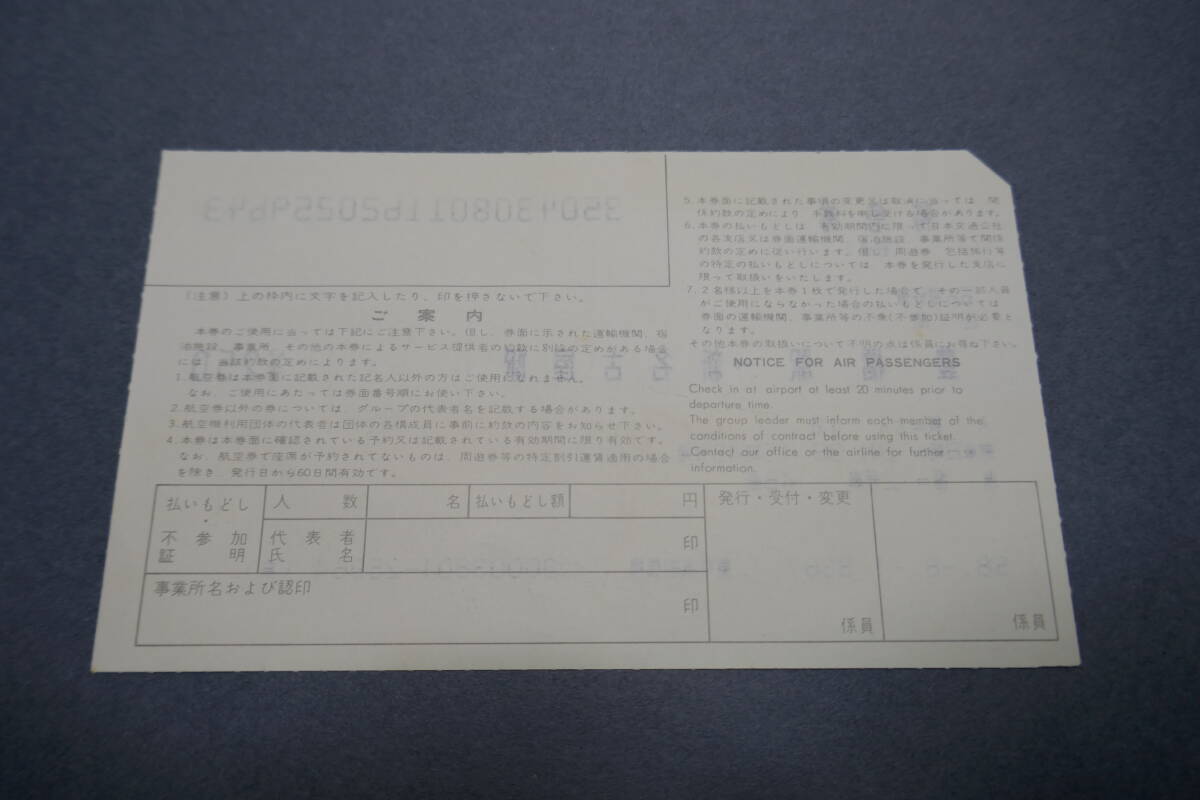 (注意) 上の枠内に文字を記入したり、印を押さないで下さい。
ご案内
本券のご使用に当っては下記にご注意下さい。但し、券面に示された運輸機関、宿
泊施設、事業所、その他の本券によるサービス提供者の約款に別段の定めがある場合
には、当該約款の定めによります。
1.航空券は本券面に記載された記名人以外の方はご使用になれません。
なお、ご使用にあたっては券面番号順にお使い下さい。
2.航空券以外の券については、グループの代表者名を記載する場合があります。
3.航空機利用団体の代表者は団体の各構成員に事前に約款の内容をお知らせ下さい。
4.本券は本券面に確認されている予約又は記載されている有効期間に限り有効です。
なお、航空券で座席が予約されてないものは、周遊券等の特定割引運賃適用の場合
を除き、発行日から60日間有効です。
5.本券面に記載された事項の変更又は取消に当っては、関
係約款の定めにより、手数料を申し受ける場合があります。
6.本券の払いもどしは、有効期間内に限って日本交通公社
の各支店又は券面運輸機関、宿泊施設、事業所等で関係
約款の定めに従い行います。但し、周遊券、包括旅行等
の特定の払いもどしについては、本券を発行した支店に
限って取扱いをいたします。
7.2名様以上を本券1枚で発行した場合で、その一部人員
がご使用にならなかった場合の払いもどしについては
券面の運輸機関、事業所等の不乗(不参加)証明が必要と
なります。
その他本券の取扱いについて不明の点は係員にお尋ね下さい。
NOTICE FOR AIR PASSENGERS
Check in at airport at least 20 minutes prior to
departure time.
The group leader must inform each member of the
conditions of contract before using this ticket.
Contact our office or the airline for further
information.
払いもどし
・
不参加
証明
人数
名
払いもどし額
円
代表者
氏名
印
事業所名および認印
印
発行・受付・変更
係員
係員